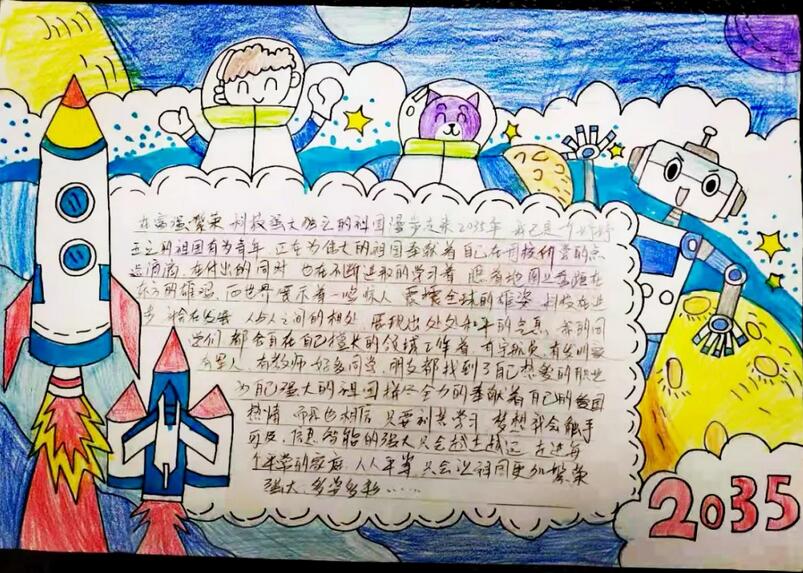 在富强繁荣 科技强大独立的祖国漫步走来2035年 我已是一
正立的祖国有为青年 正在为伟大的祖国奉献着自己在
滴滴 在付出的同时 也在不断进取的学习着
东方的雄狮 向世界展示着一 惊人 震撼全球的雄姿 科技在进
步 社会在 人与人之间的相处 展现出处处和平的 我的同
学们 都会有在自己擅长的领域工作着 有宇航员
有教师 好多同学 朋友都找到了自己想要的职业
为自己强大的祖国拼尽全力的奉献着自己的爱国
热情 而我也相信 只要刻苦学习 梦想就会触手
可及 信息智能的强大只会越走越远 走进每
个平常的家庭 人人平等 只会让祖国更加繁荣
强大 多 多彩……
2035